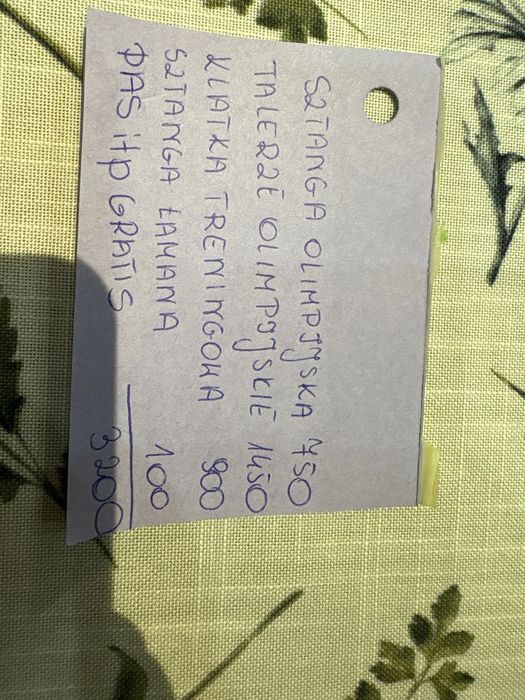 SZTANGA OLIMPIJSKA 750
TALERZE OLIMPIJSKIE 1450
KLATKA TRENINGOWA 900
SZTANGA ŁAMANA 100
PAS itp GRATIS
3200